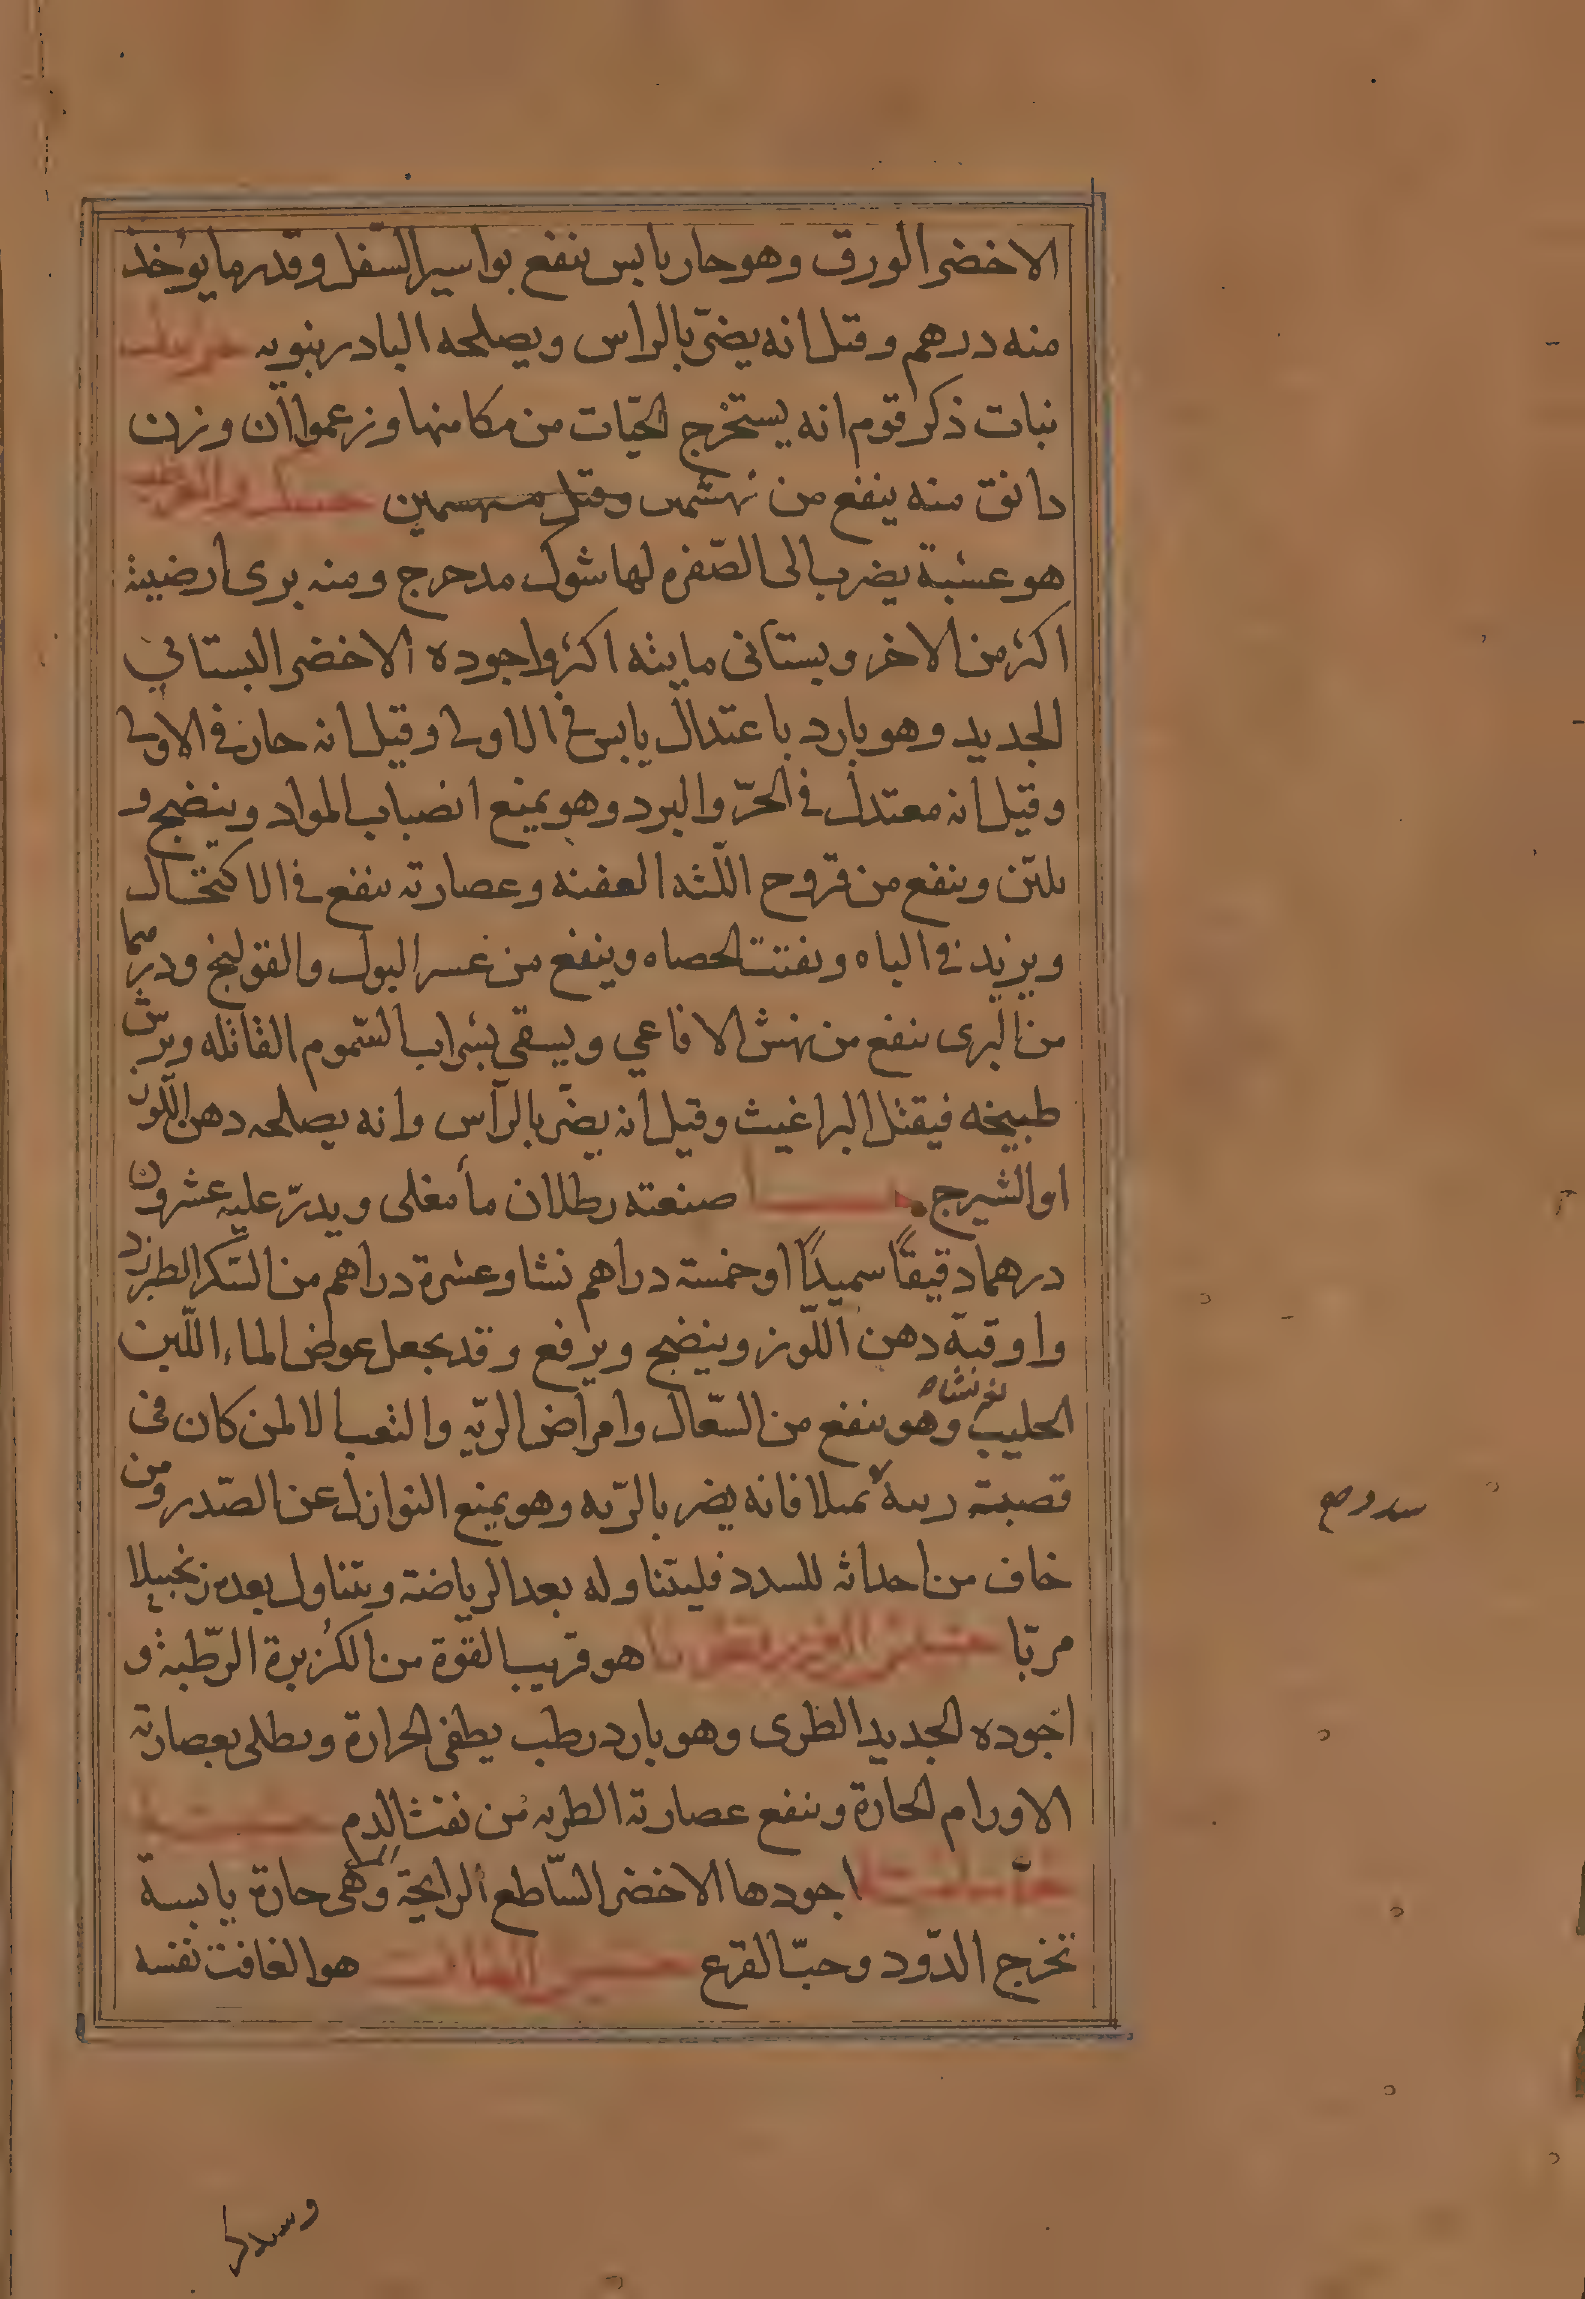 الاخضر الورق وهو حار يابس ينفع بواسير السّفل وقدر ما يوخذ
منه درهم وقيل انه يضرّ بالراس ويصلحه البادرنبويه
نبات ذكر قوم انه يستخرج الحيّات من مكامنها وزعموا ان وزن
دانق منه ينفع من نهشهن وقيل
هو عشبة يضرب الى الصّفره لها شوك مدحرج ومنه برى ارضيته
اكثر من الاخر وبستانى مايته اكثر واجوده الاخضر البستاني
الجديد وهو بارد باعتدال يابس في الاولى وقيل انه حار في الاولى
وقيل انه معتدل في الحرّ والبرد وهو يمنع انصباب المواد وينضج و
يليّن وينفع من قروح اللّثه العفنه وعصارته ينفع في الاكتحال
ويزيد في الباه ويفتت الحصاه وينفع من عسر البول والقولنج ودرهما
من البرى ينفع من نهش الافاعي ويسقى بشراب السّموم القاتله ويرش
طبيخه فيقتل البراغيث وقيل انه يضرّ بالرأس وانه يصلحه دهن اللّوز
او الشيرج صنعته رطلان مأ مغلى ويدرّ عليه عشرون
درهما دقيقاً سميداً او خمسة دراهم نشا وعشرة دراهم من السّكر الطبرزد
واوقية دهن اللّوز وينضج ويرفع وقد يجعل عوض الماء اللّبن
الحليب وهو ينفع من السّعال وامراض الريّه والتعب لا لمن كان في
قصبة ريته فانه يضر بالرّيه وهو يمنع النوازل عن الصّدر ومن
خاف من احداثه للسدد فليتناوله بعد الرياضة ويتناول بعده زنجبيلا
مربّا هو قريب القوة من الكزبرة الرّطبة و
اجوده الجديد الطرى وهو بارد رطب يطفي الحرارة ويطلى بعصارته
الاورام الحارة وينفع عصارته الطريه من نفث الدم
اجودها الاخضر السّاطع الرايحة وهى حارة يابسة
تخرج الدّود وحبّ القرع هو الغافت نفسه